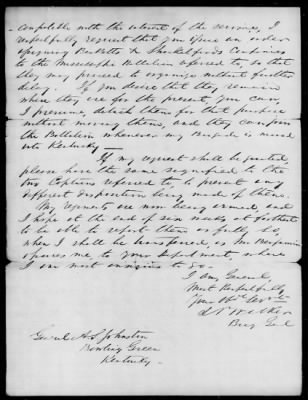 compatible with the interest of the service, I
respectfully request that you issue an order
assigning & Shackelfords Companies
to the Mississippi Battalion referred to, so that
they may proceed to organize without further
delay. If you desire that they remain
where they are for the present, you can,
I presume, detach them for that purpose
without moving them, and they can join
the Battalion whenever my Brigade is moved
into Kentucky —
If my request shall be granted,
please have the same signified to the
two Captains referred to to prevent any
different disposition being made of them.
My regiments are now being armed, and
I hope at the end of six weeks at farthest
to be able to report them as fully so,
when I shall be transferred, as Mr Benjamin
assures me to your Department, where
I am most anxious to go —
I am, General,
Most Respectfully
Your Obt Servt
L P Walker
Brig Genl
Genl A S Johnston
Bowling Green
Kentucky